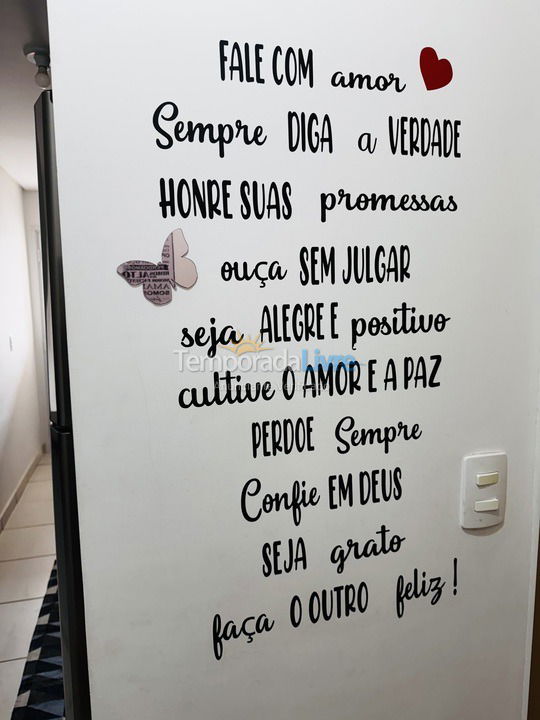 FALE COM amor
Sempre DIGA a VERDADE
HONRE SUAS promessas
ouça SEM JULGAR
seja ALEGRE E positivo
TemporadaLivre
cultive O AMOR E A PAZ
PERDOE Sempre
Confie EM DEUS
SEJA grato
faça O OUTRO feliz!